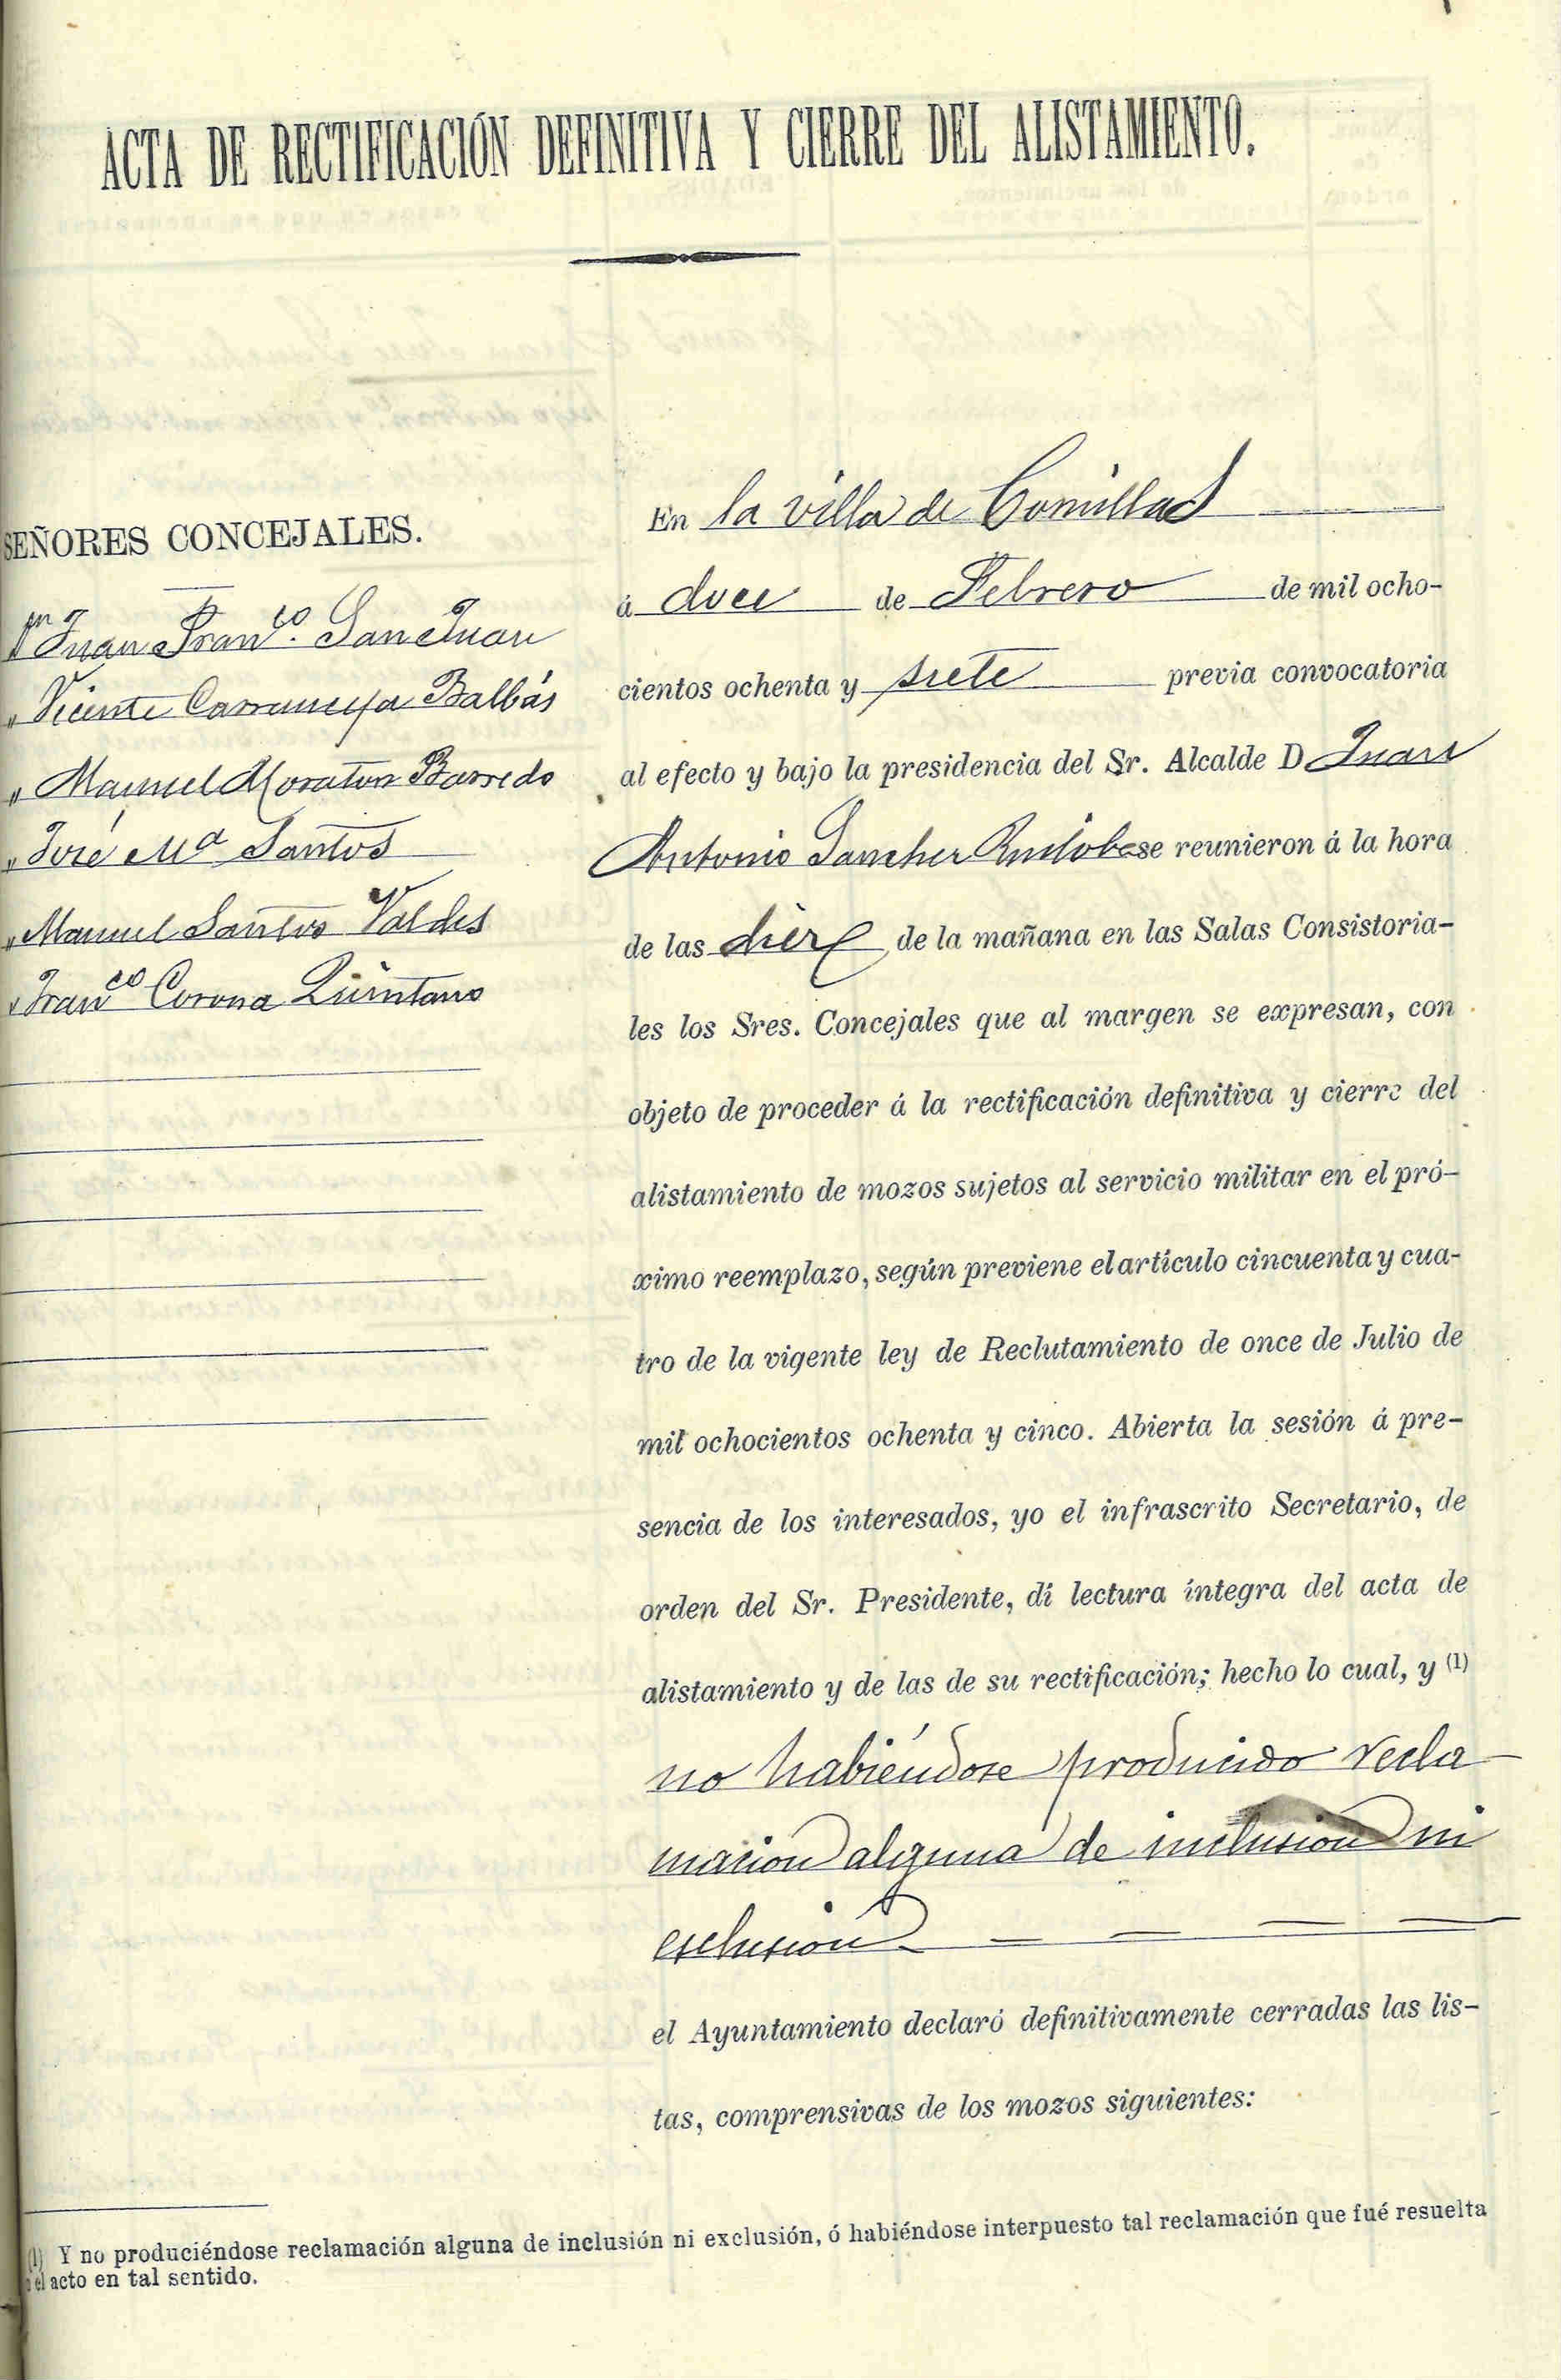 ACTA DE RECTIFICACIÓN DEFINITIVA Y CIERRE DEL ALISTAMIENTO.
SEÑORES CONCEJALES.
Dn Juan Franco. San Juan
" Vicente Carranceja Balbás
" Manuel Moraton Barredo
" José Ma Santos
" Manuel Santos Valdes
" Franco Corona Quintano
En la villa de Comillas
á doce de Febrero de mil ocho-
cientos ochenta y siete previa convocatoria
al efecto y bajo la presidencia del Sr. Alcalde D Juan
Antonio Sanchez se reunieron á la hora
de las diez de la mañana en las Salas Consistoria-
les los Sres. Concejales que al margen se expresan, con
objeto de proceder á la rectificación definitiva y cierre del
alistamiento de mozos sujetos al servicio militar en el pró-
ximo reemplazo, según previene el artículo cincuenta y cua-
tro de la vigente ley de Reclutamiento de once de Julio de
mil ochocientos ochenta y cinco. Abierta la sesión á pre-
sencia de los interesados, yo el infrascrito Secretario, de
orden del Sr. Presidente, dí lectura íntegra del acta de
alistamiento y de las de su rectificación; hecho lo cual, y (1)
no habiéndose producido recla
macion alguna de inclusion ni
esclusion
el Ayuntamiento declaró definitivamente cerradas las lis-
tas, comprensivas de los mozos siguientes:
(1) Y no produciéndose reclamación alguna de inclusión ni exclusión, ó habiéndose interpuesto tal reclamación que fué resuelta
el acto en tal sentido.